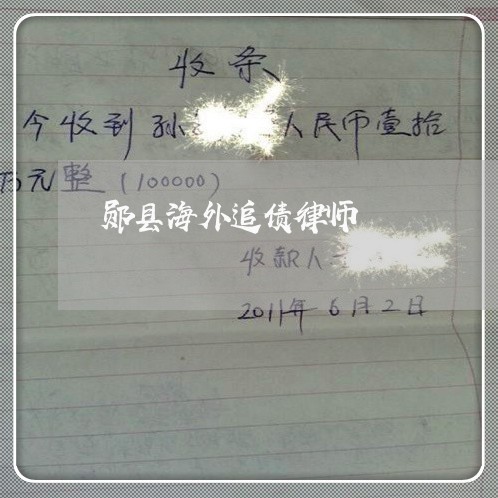 收条
今收到孙 人民币壹拾
万元整（100000）
郧县海外追债律师
收款人
2011年6月2日